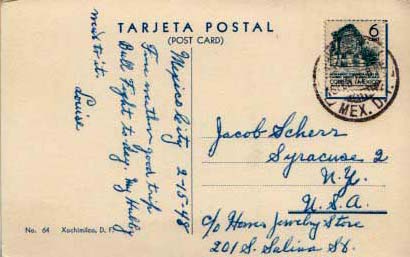 TARJETA POSTAL
(POST CARD)
Mexico City 2-15-48
Fine weather good trip
Bull Fight to-day. My Hubby
next to it.
Louise
6
CORREOS MEXICO
MEX. D.
Jacob Scherr
Syracuse 2
N.Y.
U.S.A.
c/o Hones Jewelry Store
201 S. Salina St.
No. 64 Xochimilco, D. F.